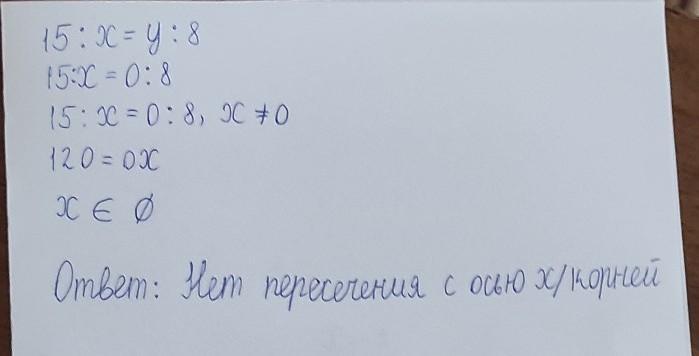 15 : x = y : 8
15:x = 0 : 8
15 : x = 0 : 8, x ≠ 0
120 = 0x
x ∈ ∅
Ответ: Нет пересечения с осью x/корней